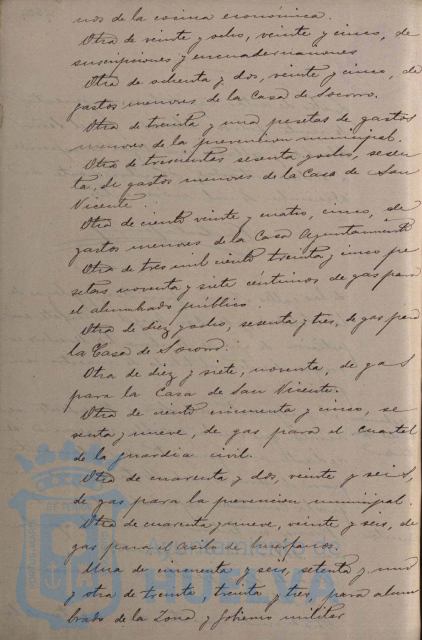 nos de la cocina económica.
Otra de veinte y ocho, veinte y cinco, de
suscripciones y encuadernaciones
Otra de ochenta y dos, veinte y cinco, de
gastos menores de la Casa de Socorro.
Otra de treinta y una pesetas de gastos
menores de la prevencion municipal.
Otra de trescientas sesenta y ocho, sesen
ta, de gastos menores de la Casa de San
Vicente.
Otra de ciento veinte y cuatro, cinco, de
gastos menores de la Casa Ayuntamiento
Otra de tres mil ciento treinta y cinco pe
setas noventa y siete céntimos de gas para
el alumbrado público.
Otra de diez y ocho, sesenta y tres, de gas para
la Casa de Socorro.
Otra de diez y siete, noventa, de gas
para la Casa de San Vicente.
Otra de ciento cincuenta y cinco, se
senta y nueve, de gas para el cuartel
de la guardia civil.
Otra de cuarenta y dos, veinte y seis,
de gas para la prevencion municipal.
Otra de cuarenta y nueve, veinte y seis, de
gas para el asilo de huerfanos.
Una de cincuenta y seis, setenta y una
y otra de treinta, treinta y tres, para alum
brado de la Zona y Gobierno militar
Ayuntamiento de
HUELVA